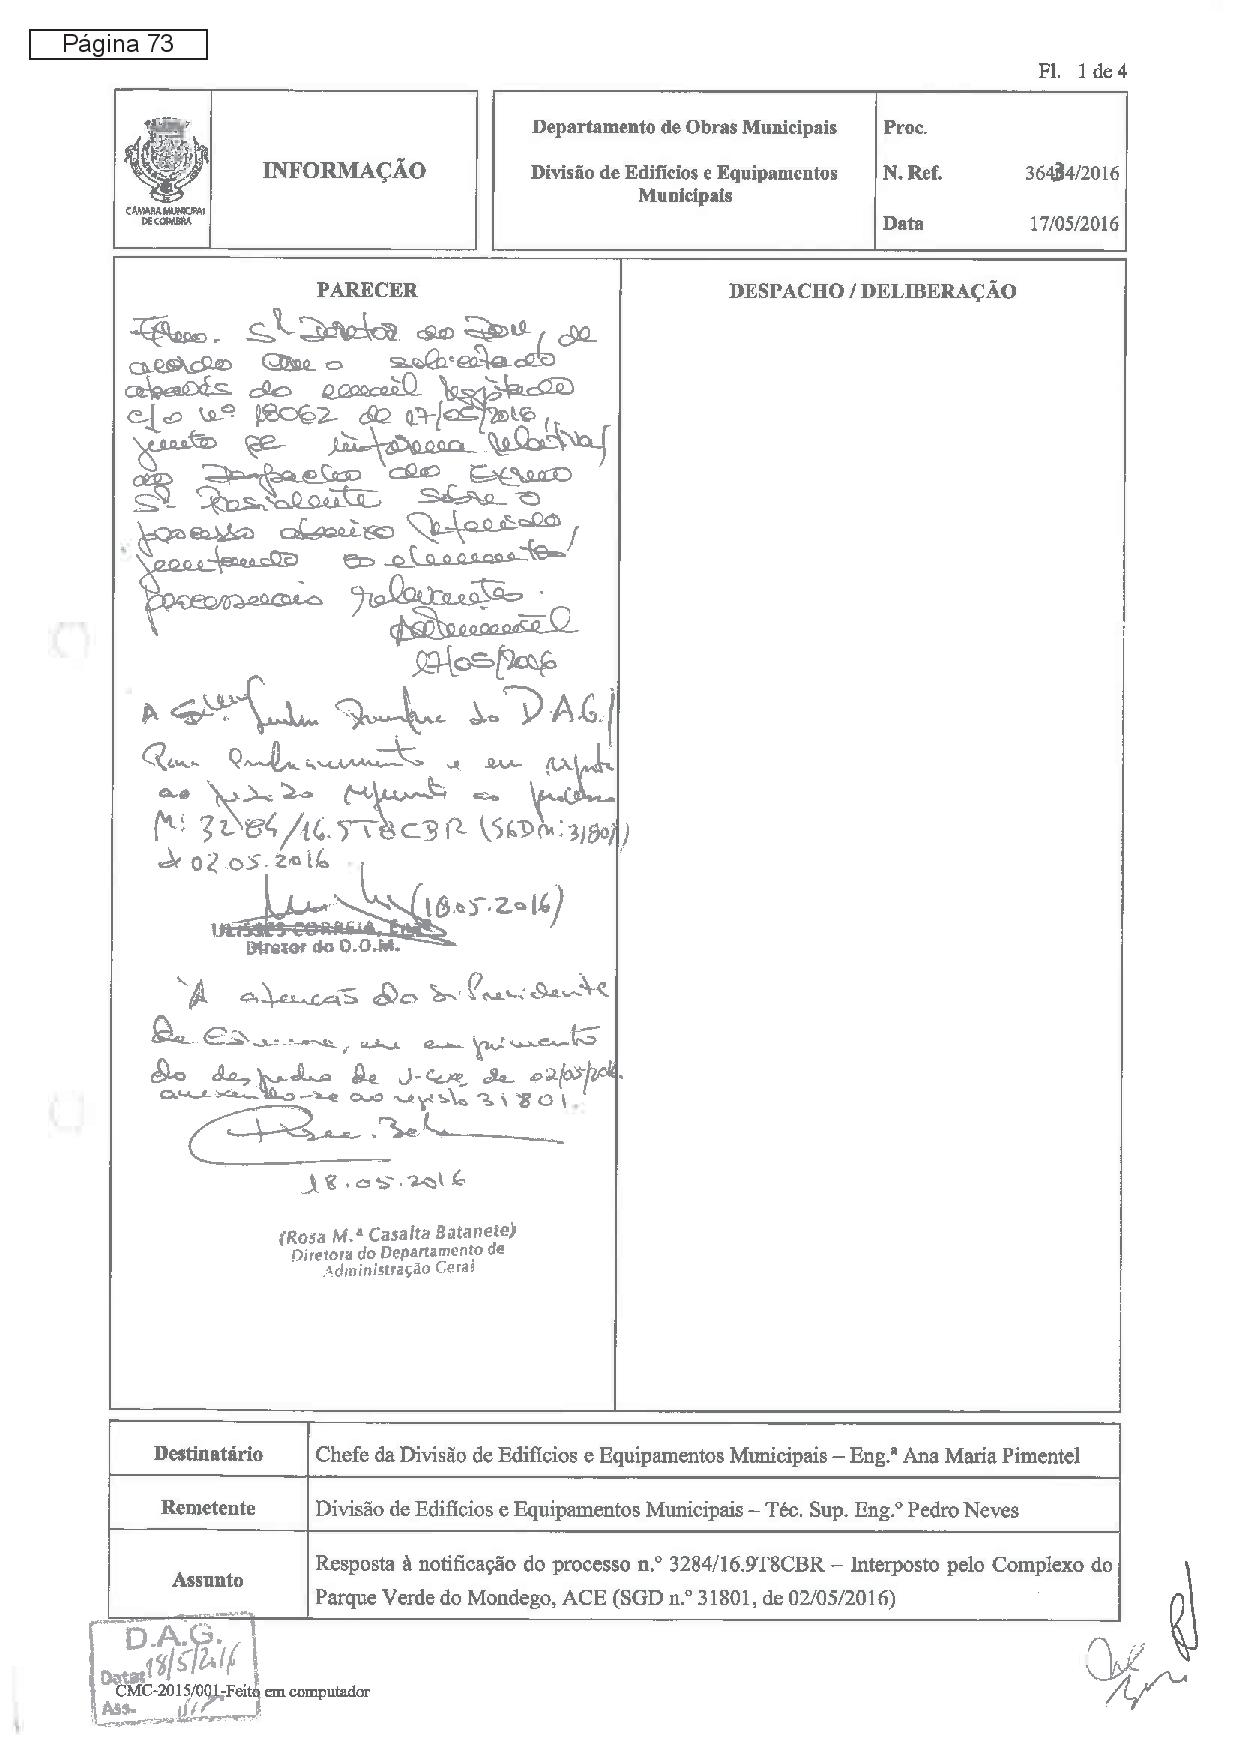 Página 73
Fl. 1 de 4
CÂMARA MUNICIPAL
DE COIMBRA
INFORMAÇÃO
Departamento de Obras Municipais
Divisão de Edifícios e Equipamentos
Municipais
Proc.
N. Ref. 36434/2016
Data 17/05/2016
PARECER
DESPACHO / DELIBERAÇÃO
Exmo. Sr. Diretor do DOM, de
acordo com o solicitado
através do email registado
c/o nº 18062 de 17/05/2016,
junto se informa relativa/
ao Despacho do Exmo
Sr. Presidente sobre o
processo abaixo referido,
juntando os elementos
processuais
17/05/2016
A do D.A.G./
Para e em resposta
ao referente ao processo
Nº 3284/16.9T8CBR (SGD nº 31801)
de 02.05.2016
(18.05.2016)
ULISSES CORREIA, Engº
Diretor do D.O.M.
À atenção do Sr. Presidente
da Câmara, em cumprimento
do despacho de V. Exª de 02/05/2016
anexando-se ao registo 31801.
18.05.2016
(Rosa M.ª Casalta Batanete)
Diretora do Departamento de
Administração Geral
Destinatário Chefe da Divisão de Edifícios e Equipamentos Municipais – Eng.ª Ana Maria Pimentel
Remetente Divisão de Edifícios e Equipamentos Municipais – Téc. Sup. Eng.º Pedro Neves
Assunto Resposta à notificação do processo n.º 3284/16.9T8CBR – Interposto pelo Complexo do
Parque Verde do Mondego, ACE (SGD n.º 31801, de 02/05/2016)
D.A.G.
Data: 18/5/2016
CMC-2015/001-Feito em computador
Ass.